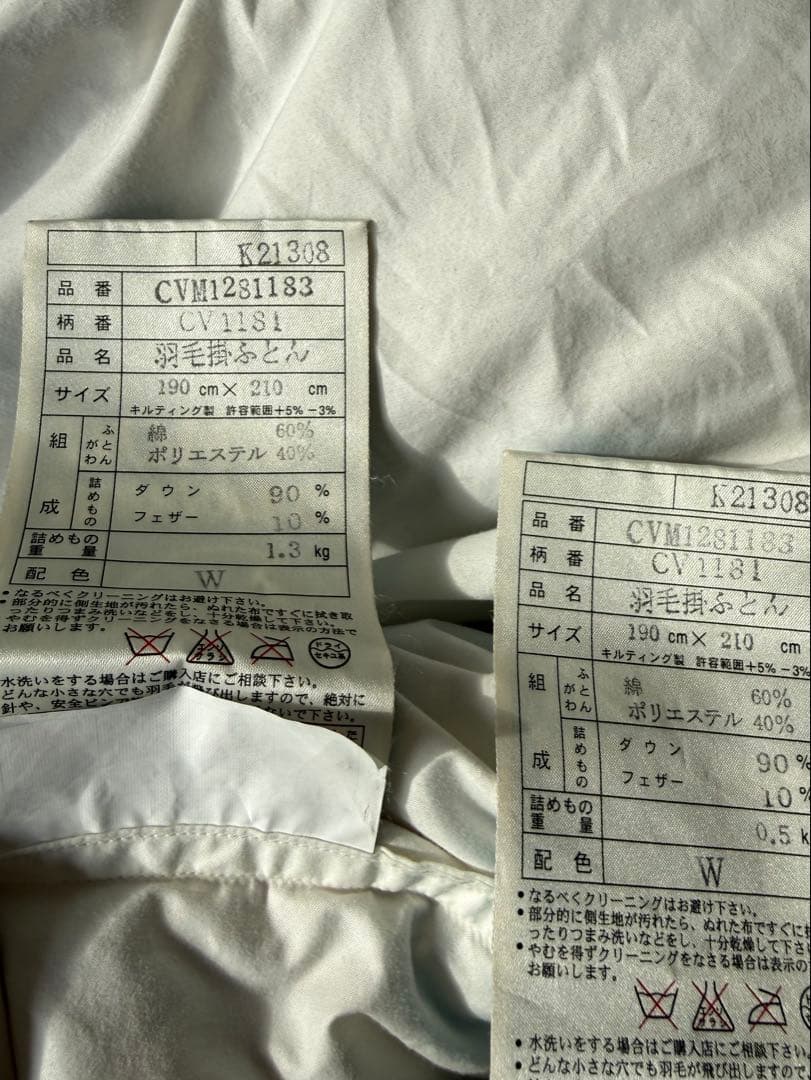 K21308
品番 CVM1281183
柄番 CV1181
品名 羽毛掛ふとん
サイズ 190 cm × 210 cm
キルティング製 許容範囲+5% -3%
組成 ふとんがわ 綿 60%
ポリエステル 40%
詰めもの ダウン 90 %
フェザー 10 %
詰めもの重量 1.3 kg
配色 W
•なるべくクリーニングはお避け下さい。
•部分的に側生地が汚れたら、ぬれた布ですぐに拭き取
ったりつまみ洗いなどをし、十分乾燥して下さい。
やむを得ずクリーニングをなさる場合は表示の方法で
お願いします。
エンソ
サラシ
ドライ
セキユ系
水洗いをする場合はご購入店にご相談下さい。
どんな小さな穴でも羽毛が飛び出しますので、絶対に
針や、安全ピン
ないで下さい。
K21308
品番 CVM1281183
柄番 CV1181
品名 羽毛掛ふとん
サイズ 190 cm × 210 cm
キルティング製 許容範囲+5% -3%
組成 ふとんがわ 綿 60%
ポリエステル 40%
詰めもの ダウン 90 %
フェザー 10 %
詰めもの重量 0.5 k
配色 W
•なるべくクリーニングはお避け下さい。
•部分的に側生地が汚れたら、ぬれた布ですぐに
ったりつまみ洗いなどをし、十分乾燥して下さ
•やむを得ずクリーニングをなさる場合は表示の
お願いします。
エンソ
サラシ
•水洗いをする場合はご購入店にご相談下さい。
•どんな小さな穴でも羽毛が飛び出しますので